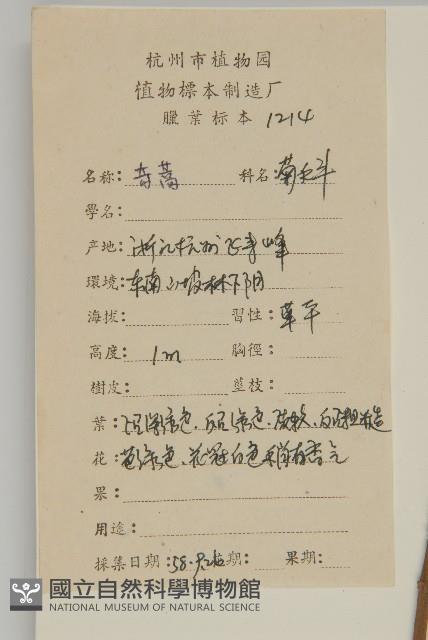 杭州市植物园
植物標本制造厂
臘葉标本 1214
名称: 奇蒿 科名: 菊科
學名:
产地: 浙江杭州飞来峰
環境: 东南山坡林下阴
海拔: 習性: 草本
高度: 1m 胸徑:
樹皮: 莖枝:
葉: 绿色
花: 绿色、花冠白色 稍有香气
果:
用途:
採集日期: 58. 花期: 果期:
國立自然科學博物館
NATIONAL MUSEUM OF NATURAL SCIENCE